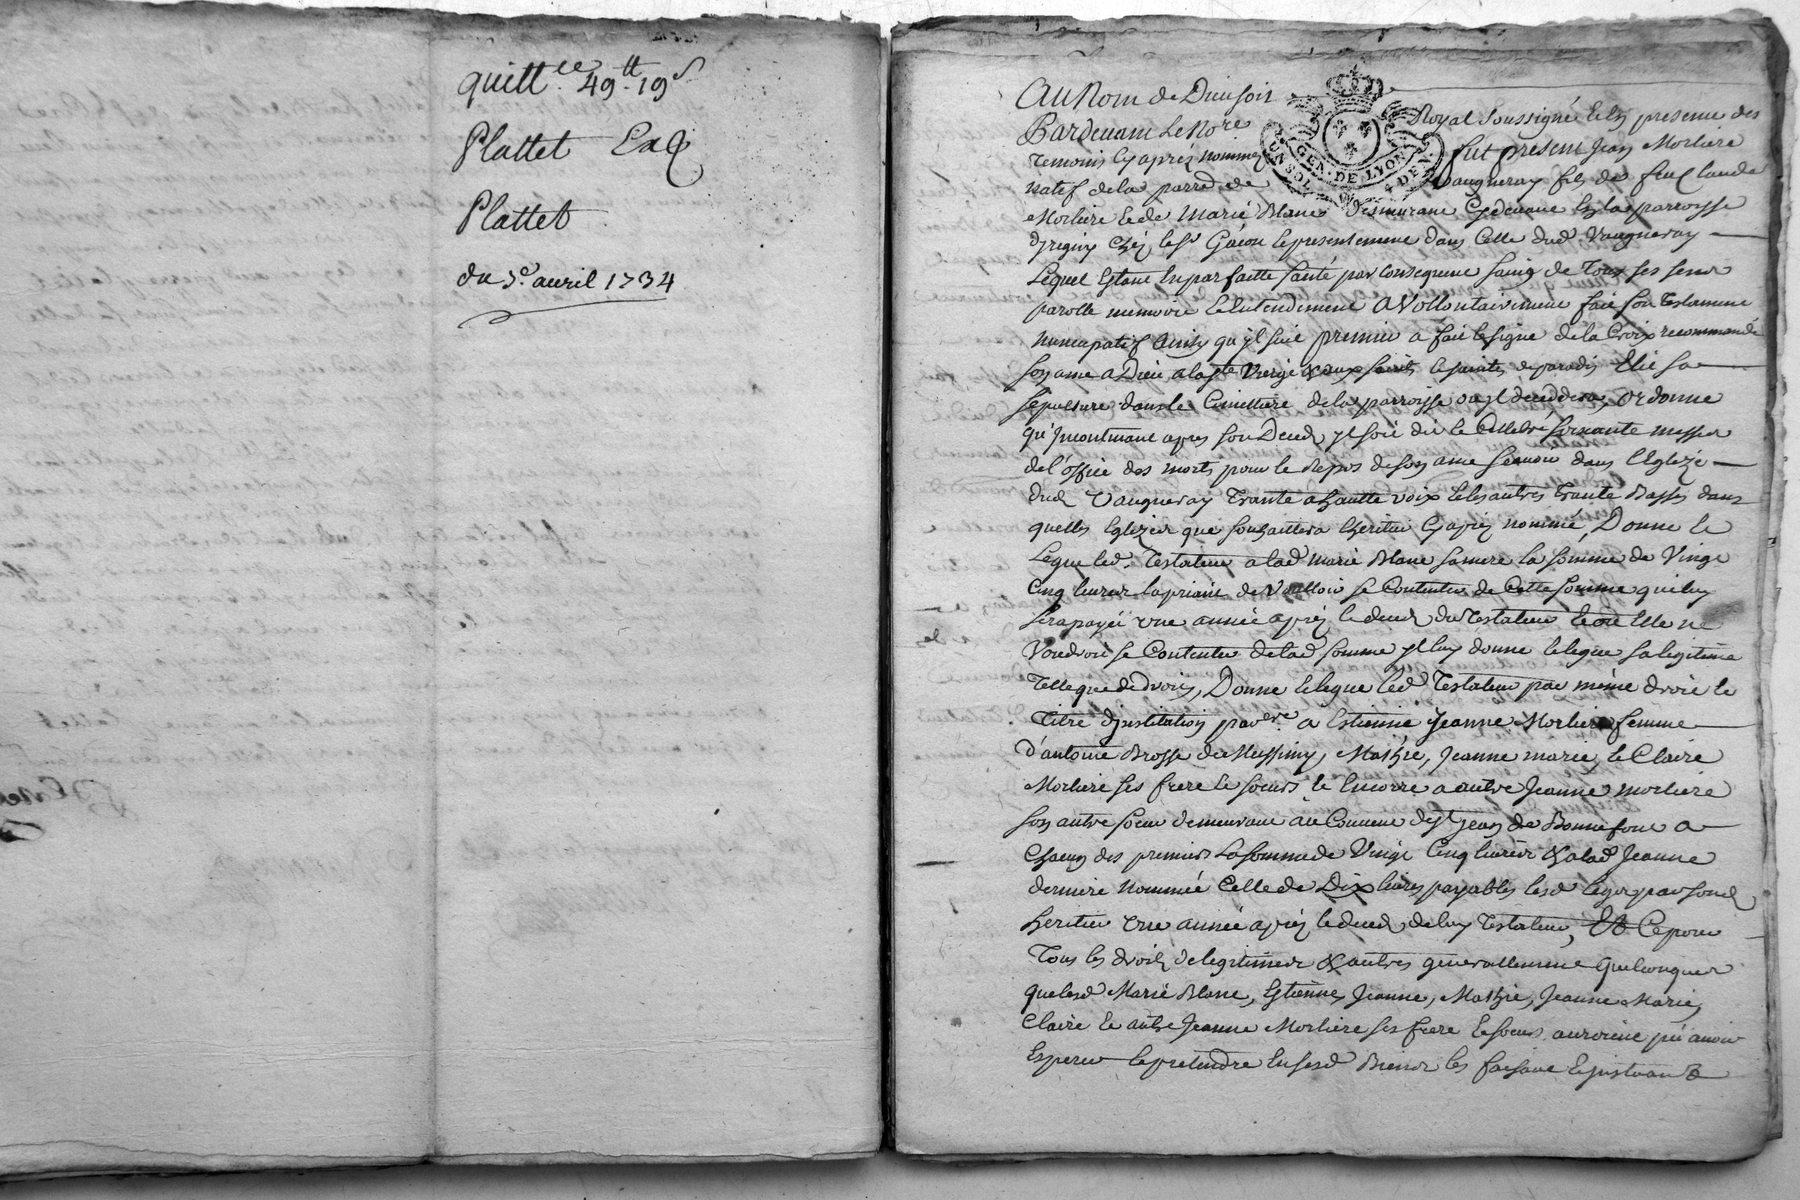 quitt.ce 49.tt 19 s
Plattet
Plattet
du 3e. avril 1734
Au Nom de Dieu soit
Pardevant le No.re Royal soussigné et en presence des
temoins cy apréz nommez fut present Jean Morliere
natif de la parr.e de Vaugneray fils de feu Claude
Morliere et de Marie Blanc demeurant cydevant en la parroisse
d'Irigny chéz le s.r et presentement dans celle dud. Vaugneray
Lequel estant en parfaitte santé par consequent sain de tous ses sens
parolle memoire et entendement a vollontairement fait son testament
nuncupatif ainsy qu'jl suit premier a fait le signe de la Croix recommandé
son ame a Dieu, a la s.te Vierge & aux saints et saintes de paradis Elit sa
sepulture dans le Cimettiere de la parroisse ou jl deceddera, ordonne
qu'jncontinant apres son Deceds jl soit dit et cellebré soixante messes
de l'office des morts pour le repos de son ame sçavoir dans l'Eglize
dud. Vaugneray trante a hautte voix et les autres trante basses dans
quelles Eglizes que souhaittera l'heritier cy apréz nommé, Donne et
Legue led. Testateur a lad. Marie Blanc sa mere la somme de Vingt
cinq livres la priant de voulloir se contenter de cette somme qui luy
sera payéé une année apréz le deceds du Testateur et ou Elle ne
voudroit se contenter de lad. somme jl luy donne et legue sa legitime
telle que de droit, Donne et legue led. Testateur par même droit et
titre d'institution par.ere a Estienne Jeanne Morliere femme
d'antoine Brosse de Messimy, Mathie, Jeanne marie, et Claire
Morliere ses frere et soeurs et encorre a autre Jeanne morliere
son autre soeur demeurant au Couvent de s.t Jean de Bonnefont a
chacun des premiers la somme de Vingt cinq livres & a lad. Jeanne
derniere nommée celle de Dix livres payables lesd. legs par sond.
heritier une année apréz le deceds de luy Testateur, Et ce pour
tous les droits de legitimes & autres generallement quelconques
que lesd. Marie Blanc, Estienne, Jeanne, Mathie, Jeanne Marie,
Claire et autre Jeanne Morliere ses frere et soeurs auroient pû avoir
esperer et pretendre en sesd. Biens les faisant et jnstituant
GEN. DE LYON